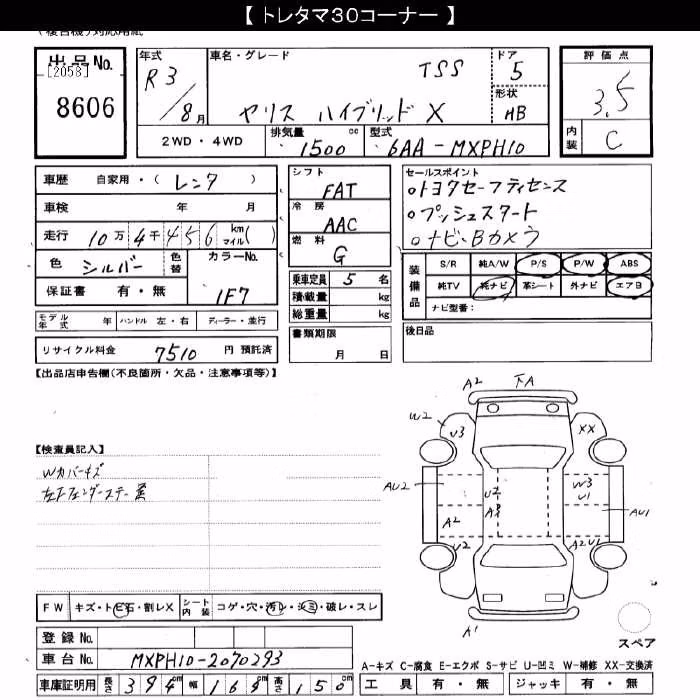 【 トレタマ30コーナー 】
出品No. [2058] 8606
年式 R3/8月
車名・グレード TSS ヤリス ハイブリッド X
ドア 5
形状 HB
評価点 3.5
内装 C
2WD・4WD
排気量 1500 cc
型式 6AA-MXPH10
車歴 自家用・( レンタ )
車検 年 月
走行 10万4千456 km マイル( )
色 シルバー 色替
カラーNo. 1F7
保証書 有・無
シフト FAT
冷房 AAC
燃料 G
乗車定員 5 名
積載量 kg
総重量 kg
書類期限 月 日
セールスポイント
○トヨタセーフティセンス
○プッシュスタート
○ナビ・Bカメラ
装備品 S/R 純A/W P/S P/W ABS
純TV 純ナビ 革シート 外ナビ エアB
ナビ型番:
後日品
モデル年式 年 ハンドル 左・右 ディーラー・並行
リサイクル料金 7510 円 預託済
【出品店申告欄(不良箇所・欠品・注意事項等)】
【検査員記入】
Wカバーキズ
A2 下A
W2 U3 XX
AU2 U2 W3 U1
A2 A3 AU1
U2 A2U1
A1
スペア
FW キズ・ト ビ石・割レX シート内装 コゲ・穴・汚レ・シミ・破レ・スレ
登録No.
車台No. MXPH10-2070293
車庫証明用 長さ 394cm 幅 169cm 高さ 150cm
A-キズ C-腐食 E-エクボ S-サビ U-凹ミ W-補修 XX-交換済
工具 有・無 ジャッキ 有・無